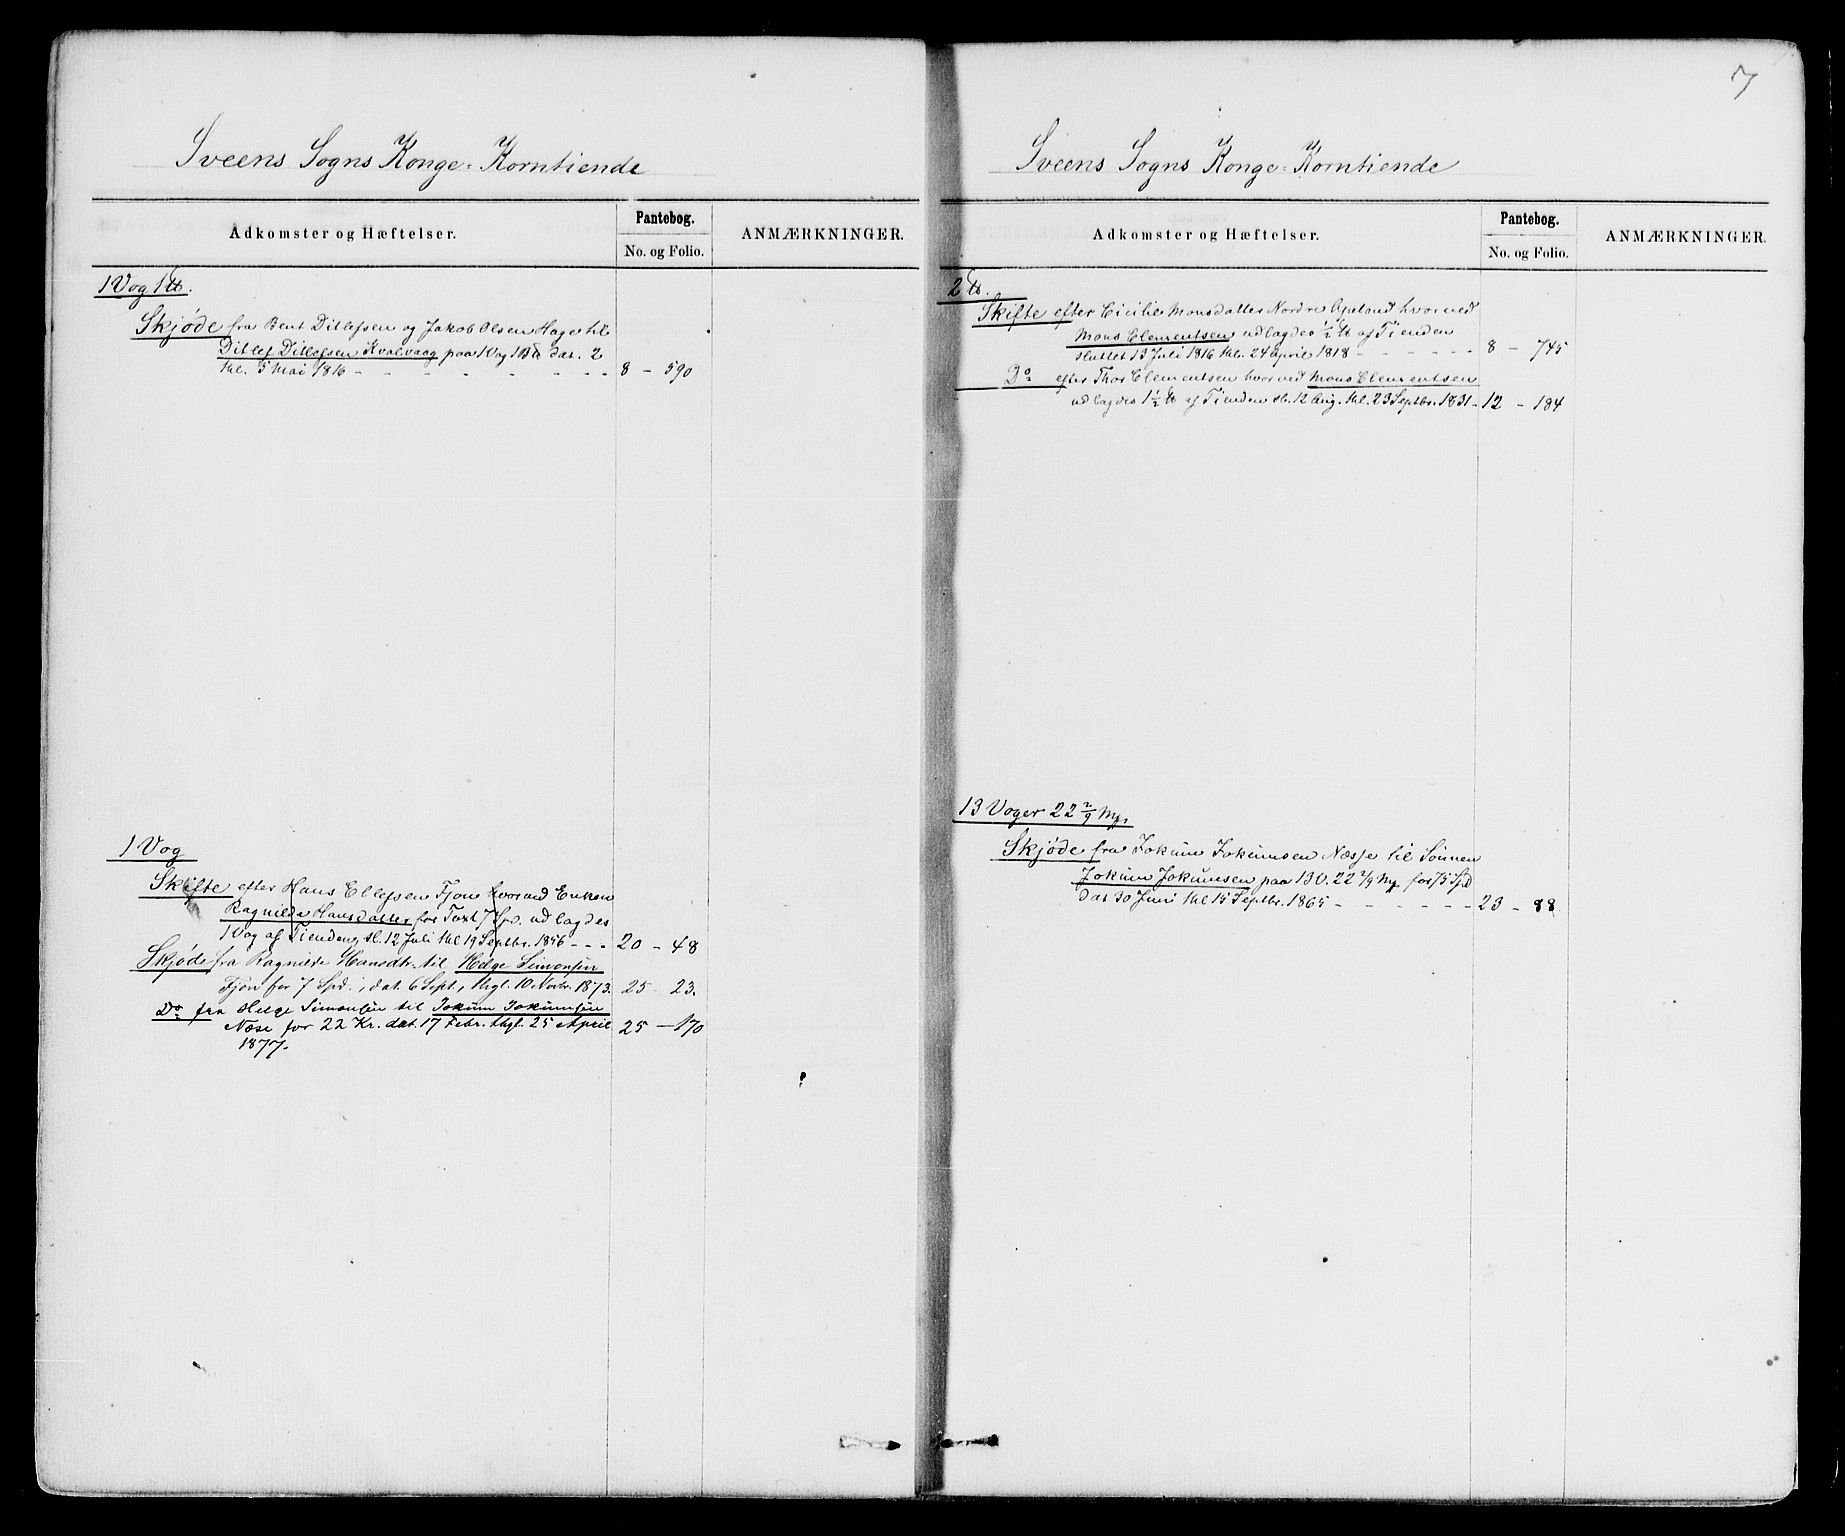 Sveens Sogns Konge=Korntiende
Adkomster og Hæftelser.
Pantebog.
No. og Folio.
ANMÆRKNINGER.
1 Vog 1 ℔.
Skjøde fra Bent Ditlefsen og Jakob Olsen Hage til
Ditlef Ditlefsen Kvalvaag paa 1 Vog 1 B℔ dat. 2
thl. 5 Mai 1816 - - - - - - 8 - 590
1 Vog
Skifte efter Hans Ellefsen Fjon hvorved Enken
Ragnilda Hansdatter for Taxt 7 Spd. udlagdes
1 Vog af Tienden, sl. 12 Juli thl 19 Septbr. 1856 - - - 20 - 48
Skjøde fra Ragnilde Hansdtr. til Helge Simonsen
Fjon for 7 Spd., dat. 6 Sept., thgl. 10 Novbr. 1873. 25 - 23.
Do fra Helge Simonsen til Jokum Jokumsen
Næse for 22 Kr. dat. 17 Febr. thgl. 25 April 25 - 170
1877.
7
Sveens Sogns Konge=Korntiende
Adkomster og Hæftelser.
Pantebog.
No. og Folio.
ANMÆRKNINGER.
2 ℔.
Skifte efter Cicilie Monsdatter Nordre Apeland hvorved
Mons Clemetsen udlagdes 1/2 ℔ af Tienden
sluttet 13 Juli 1816 thl. 24 April 1818 - - - - - - 8 - 745
Do efter Thor Clementsen hvorved Mons Clementsen
udlagdes 1 1/2 ℔ af Tienden sl. 12 Aug. thl. 23 Septbr. 1831 - 12 - 184
13 Voger 22 2/9 Mp.
Skjøde fra Jokum Jokumsen Næsse til Sønnen
Jokum Jokumsen paa 13 V. 22 2/9 Mp for 75 Spd
dat 30 Juni thl 15 Septbr. 1865 - - - - - - 23 - 88